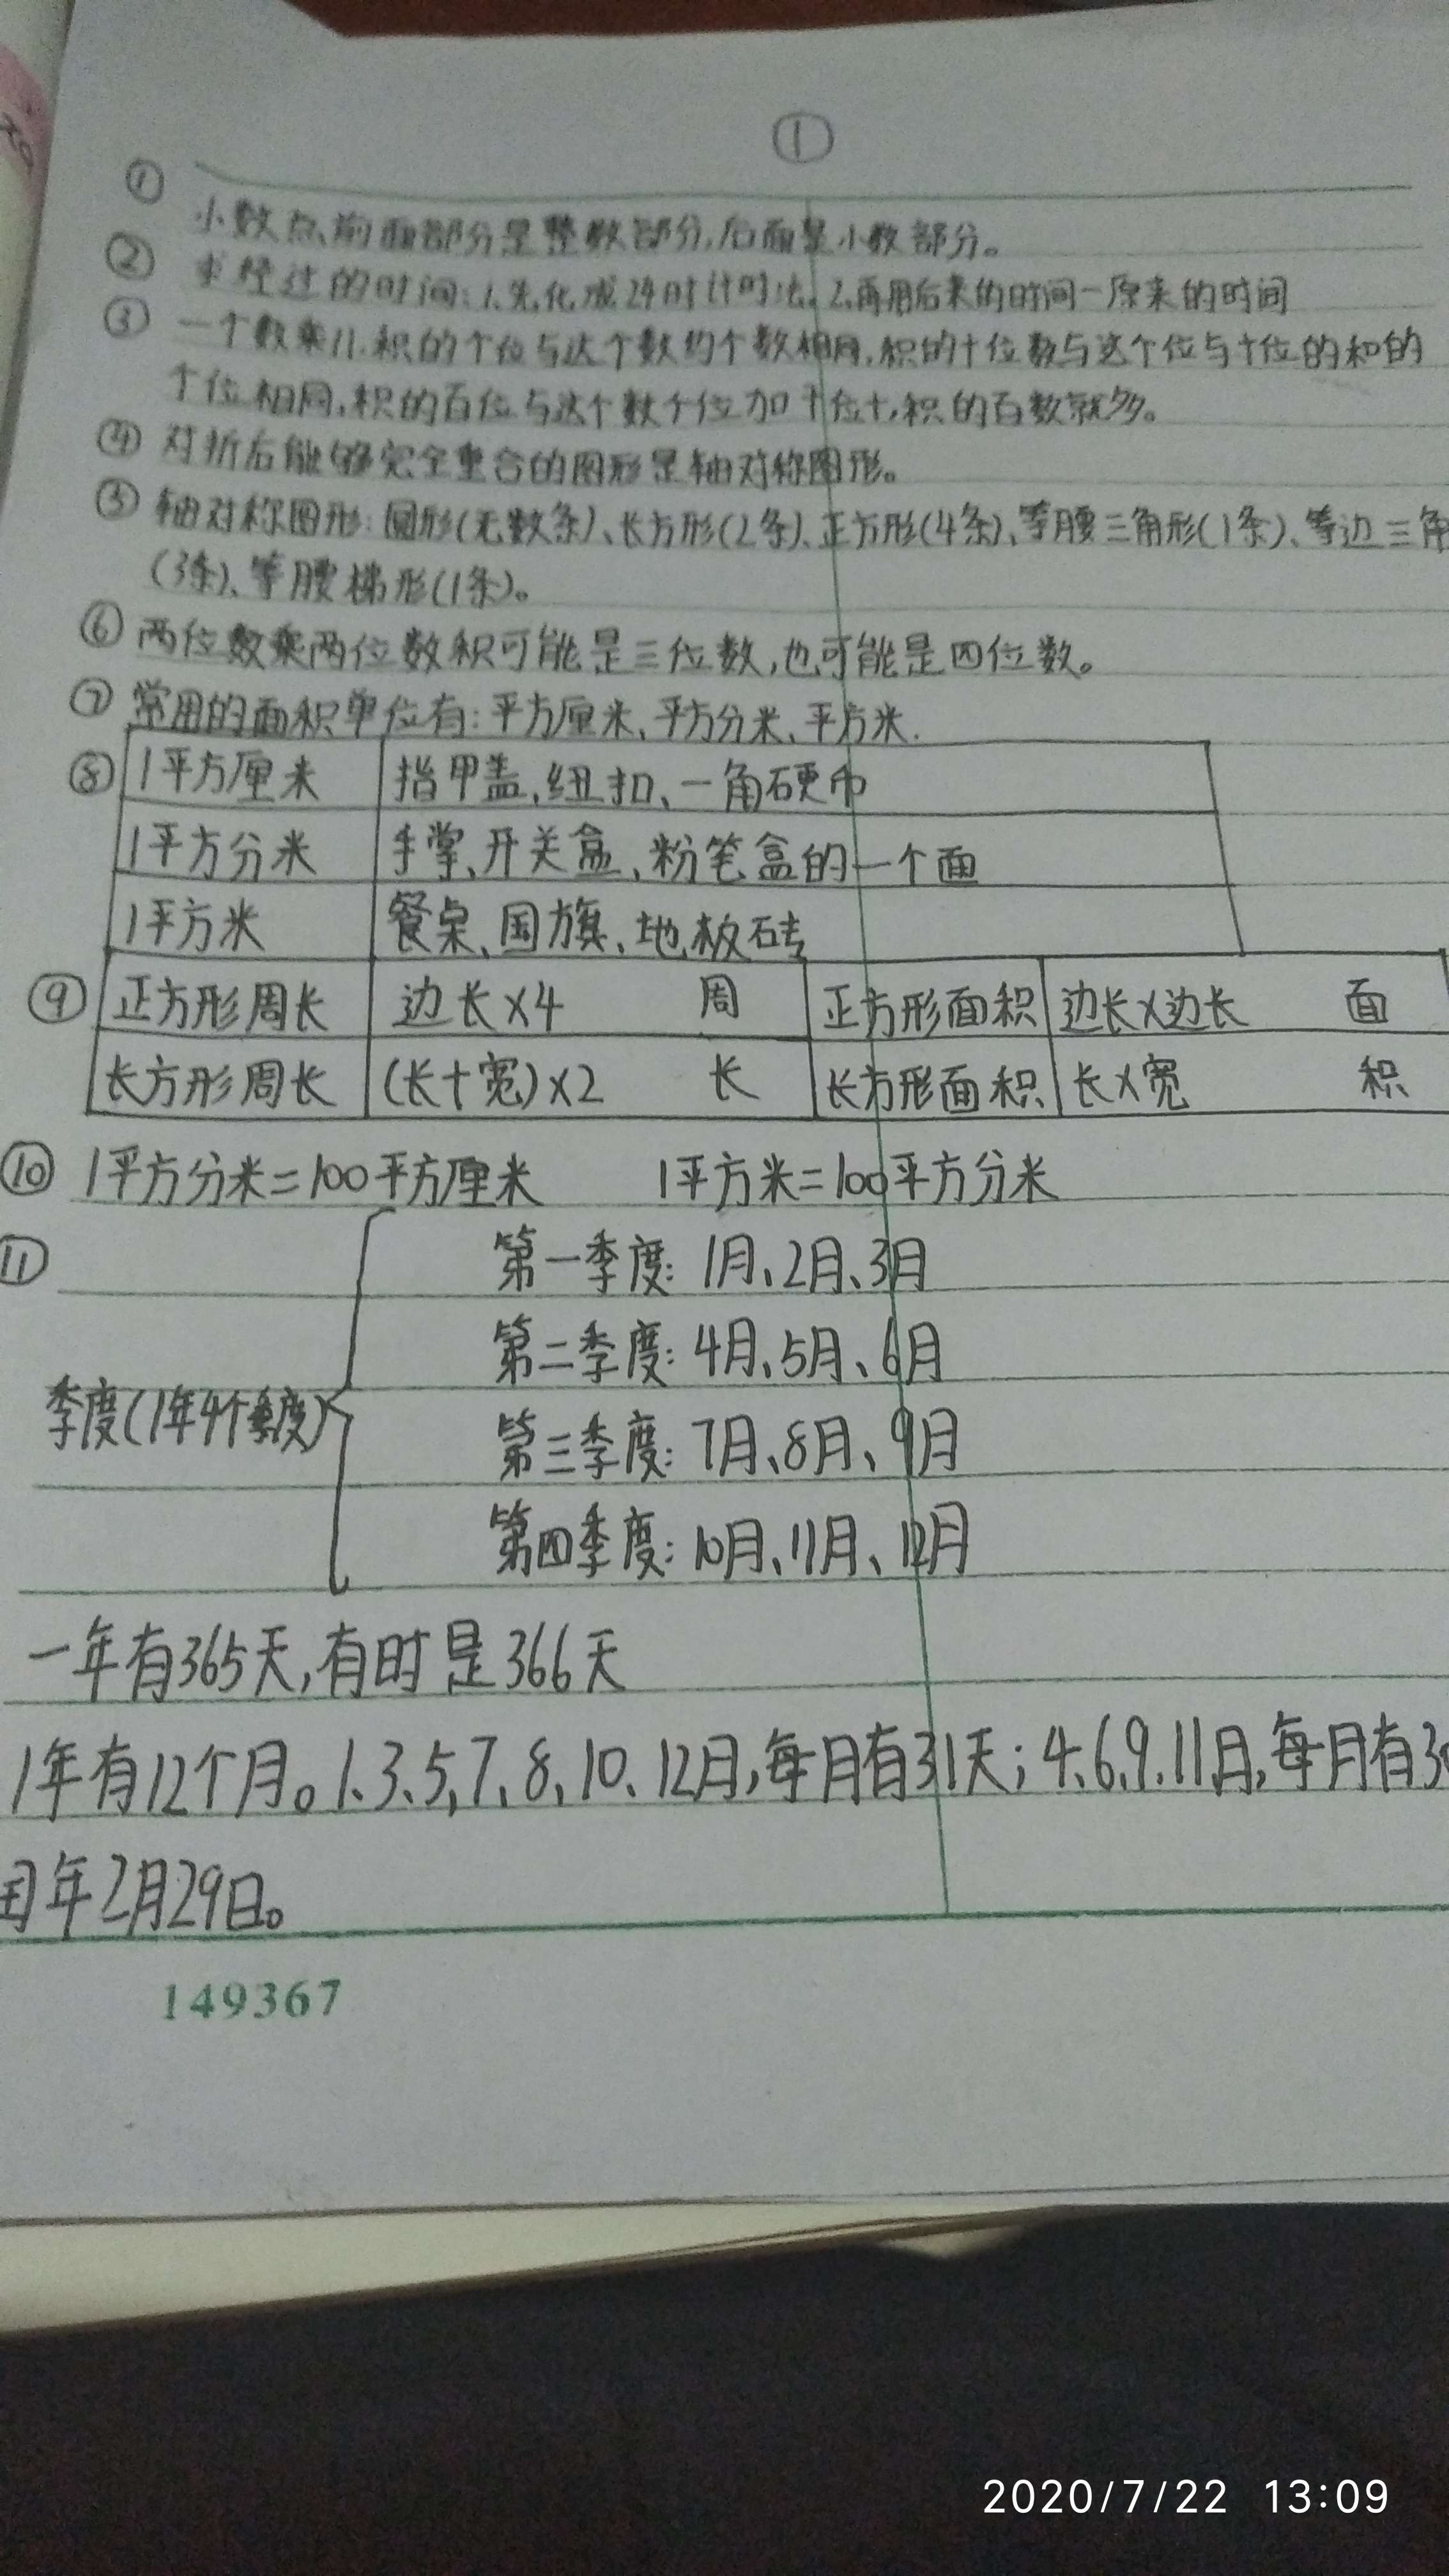 ①
① 小数点前面部分是整数部分,后面是小数部分。
② 求经过的时间:1.先化成24时计时法。2.再用后来的时间一原来的时间
③ 一个数乘11.积的个位与这个数的个数相同,积的十位数与这个位与十位的和的
个位相同,积的百位与这个数个位加十位十,积的百数就多。
④ 对折后能够完全重合的图形是轴对称图形。
⑤ 轴对称图形:圆形(无数条)、长方形(2条)、正方形(4条)、等腰三角形(1条)、等边三角
(3条)、等腰梯形(1条)。
⑥ 两位数乘两位数积可能是三位数,也可能是四位数。
⑦ 常用的面积单位有:平方厘米、平方分米、平方米.
⑧ 1平方厘米 指甲盖、纽扣、一角硬币
1平方分米 手掌、开关盒、粉笔盒的一个面
1平方米 餐桌、国旗、地板砖
⑨ 正方形周长 边长×4 周 正方形面积 边长×边长 面
长方形周长 (长+宽)×2 长 长方形面积 长×宽 积
⑩ 1平方分米=100平方厘米 1平方米=100平方分米
⑪ 第一季度:1月、2月、3月
第二季度:4月、5月、6月
季度(1年4个季度)
第三季度:7月、8月、9月
第四季度:10月、11月、12月
一年有365天,有时是366天
1年有12个月。1、3、5,7、8、10、12月,每月有31天;4、6、9、11月,每月有3
年2月29日。
149367
2020/7/22 13:09